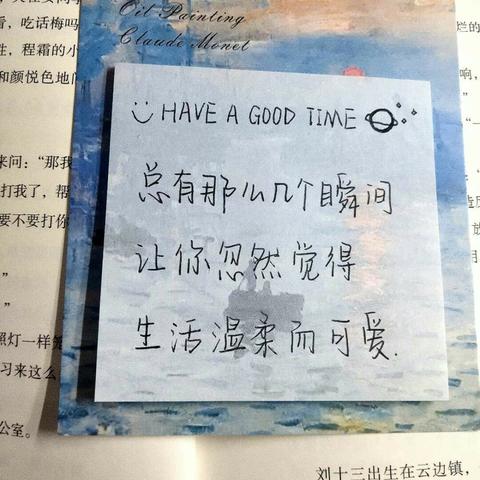 Oil Painting
Claude Monet
HAVE A GOOD TIME
总有那么几个瞬间
让你忽然觉得
生活温柔而可爱.
看，吃话梅吗
性，程霜的小
和颜悦色地问
来问：“那我
打我了，帮
要不要打你
”
”
照灯一样
习来这么
公室。
烂的
响，
”
“一
放
月
刘十三出生在云边镇，